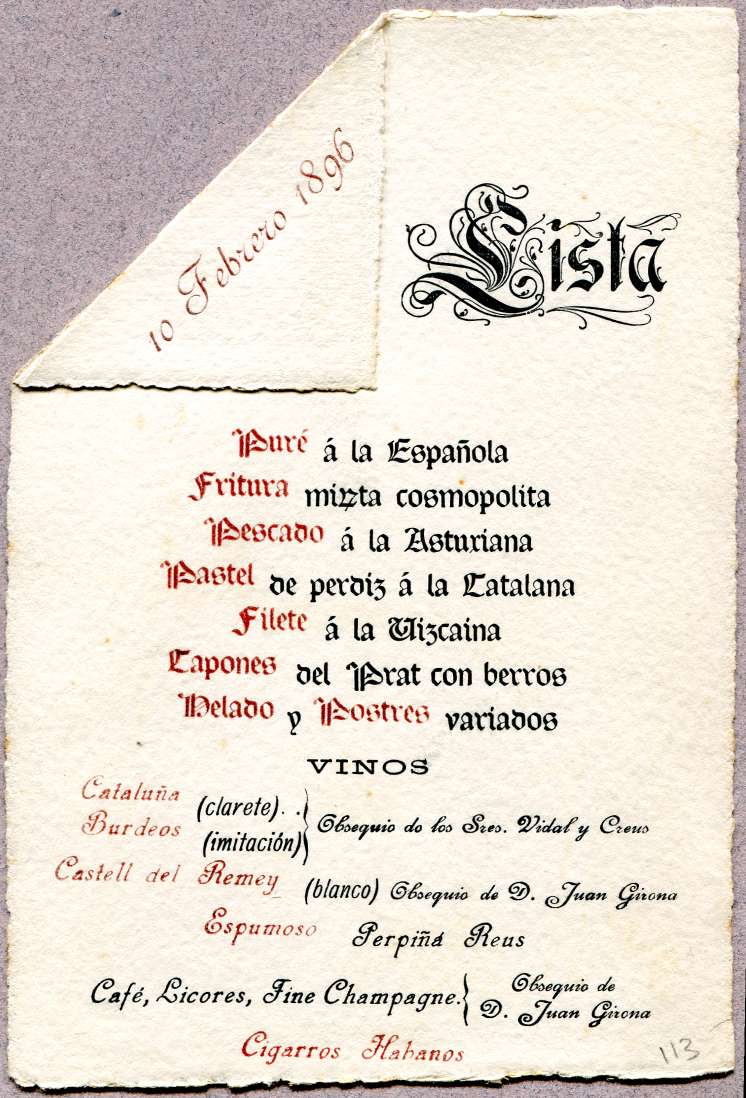 10 Febrero 1896
Lista
Puré á la Española
Fritura mixta cosmopolita
Pescado á la Asturiana
Pastel de perdiz á la Catalana
Filete á la Vizcaina
Capones del Prat con berros
Helado y Postres variados
VINOS
Cataluña (clarete). .
Burdeos (imitación)
Obsequio de los Sres. Vidal y Creus
Castell del Remey (blanco) Obsequio de D. Juan Girona
Espumoso Perpiñá Reus
Café, Licores, Fine Champagne.
Obsequio de
D. Juan Girona
Cigarros Habanos
113